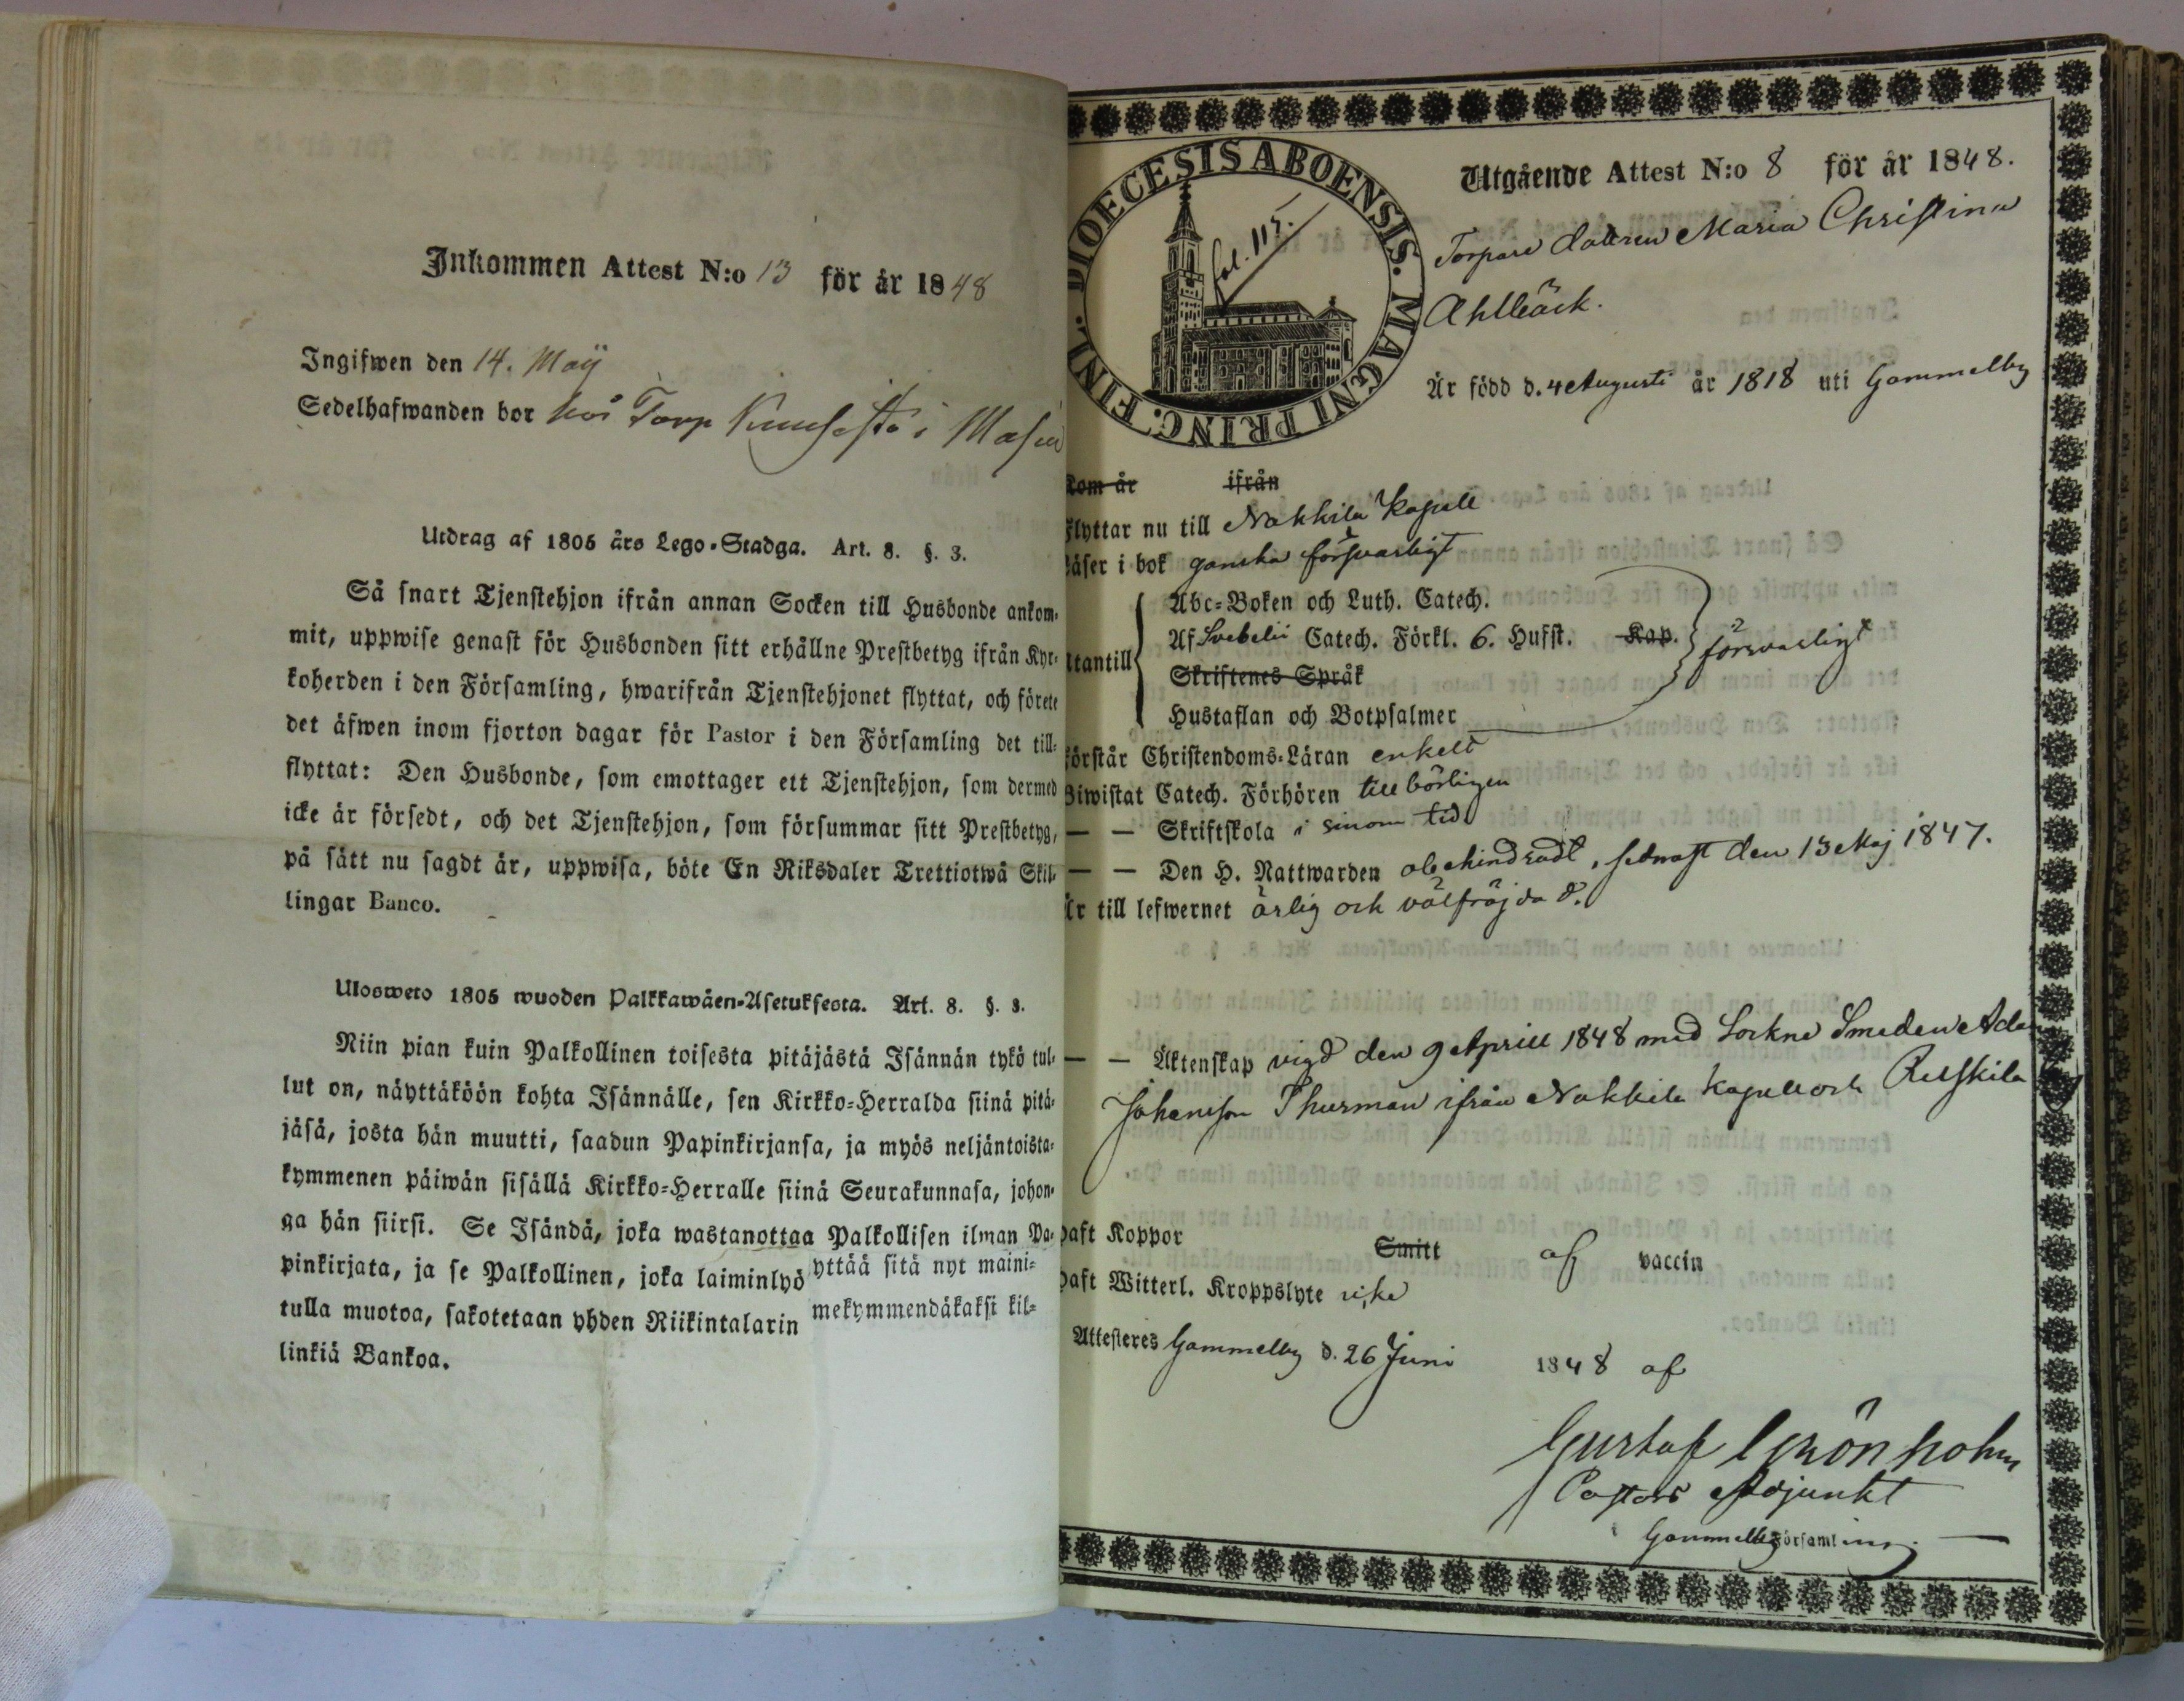 Inkommen Attest N:o 13 för år 1848
Ingifwen den 14. Maÿ
Sedelhafwanden bor hos Torp
Utdrag af 1805 års Lego-Stadga. Art. 8. §. 3.
Så snart Tjenstehjon ifrån annan Socken till Husbonde ankom-
mit, uppwise genast för Husbonden sitt erhållne Prestbetyg ifrån Kyr-
koherden i den Församling, hwarifrån Tjenstehjonet flyttat, och förete
det äfwen inom fjorton dagar för Pastor i den Församling det till-
flyttat: Den Husbonde, som emottager ett Tjenstehjon, som dermed
icke är försedt, och det Tjenstehjon, som försummar sitt Prestbetyg,
på sätt nu sagdt är, uppwisa, böte En Riksdaler Trettiotwå Skil-
lingar Banco.
Ulosweto 1805 wuoden Palkkawäen-Asetuksesta. Art. 8. §. 3.
Niin pian kuin Palkollinen toisesta pitäjästä Isännän tykö tul-
lut on, näyttäköön kohta Isännälle, sen Kirkko-Herralda siinä pitä-
jäsä, josta hän muutti, saadun Papinkirjansa, ja myös neljäntoista-
kymmenen päiwän sisällä Kirkko-Herralle siinä Seurakunnasa, johon-
ga hän siirsi. Se Isändä, joka wastanottaa Palkollisen ilman Pa-
pinkirjata, ja se Palkollinen, joka laiminlyö yttää sitä nyt maini-
tulla muotoa, sakotetaan yhden Riikintalarin mekymmendäkaksi kil-
linkiä Bankoa.
DIOECESIS ABOENSIS. MAGNI PRINC. FINL.
fol. 115.
Utgående Attest N:o 8 för år 1848.
Torpare dottren Maria Christina
Ahlbäck.
Är född d. 4 Augusti år 1818 uti Gammelby
Kom år ifrån
Flyttar nu till Nakkila Kapell
Läser i bok ganska försvarligt
Abc-Boken och Luth. Catech.
Af Svebelii Catech. Förkl. 6. Hufst. Kap.
Utantill försvarligt
Skriftenes Språk
Hustaflan och Botpsalmer
Förstår Christendoms-Läran enkelt
Biwistat Catech. Förhören tillbörligen
— — Skriftskola i sinom tid
— — Den H. Nattwarden obehindradt, sednast den 13 Maj 1847.
Är till lefwernet ärlig och välfräjdad.
— — Äktenskap vigd den 9 Aprill 1848 med Sockne Smeden Adam
Johansson Thurman ifrån Nakkila Kapell och
Haft Koppor Smitt af vaccin
Haft Witterl. Kroppslyte icke
Attesteres Gammelby d. 26 Juni 1848 af
Gustaf Grönholm
Pastors Adjunkt
Gammelby Församling.